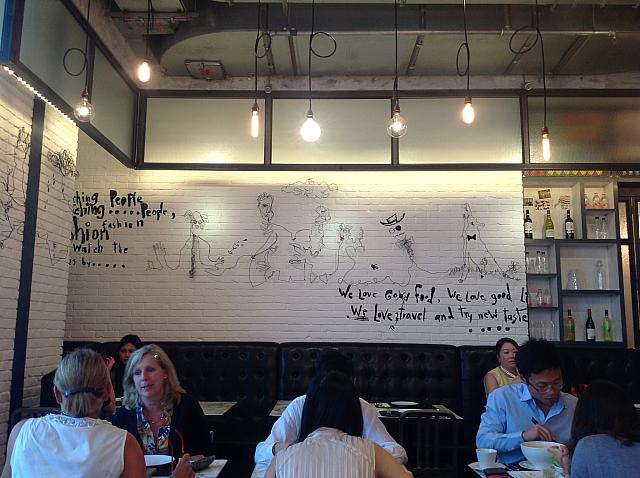 shing People
ching.....People,
hion fashion
Watch the
by.....
We Love Good food, We Love good
We Love travel and try new taste
.....